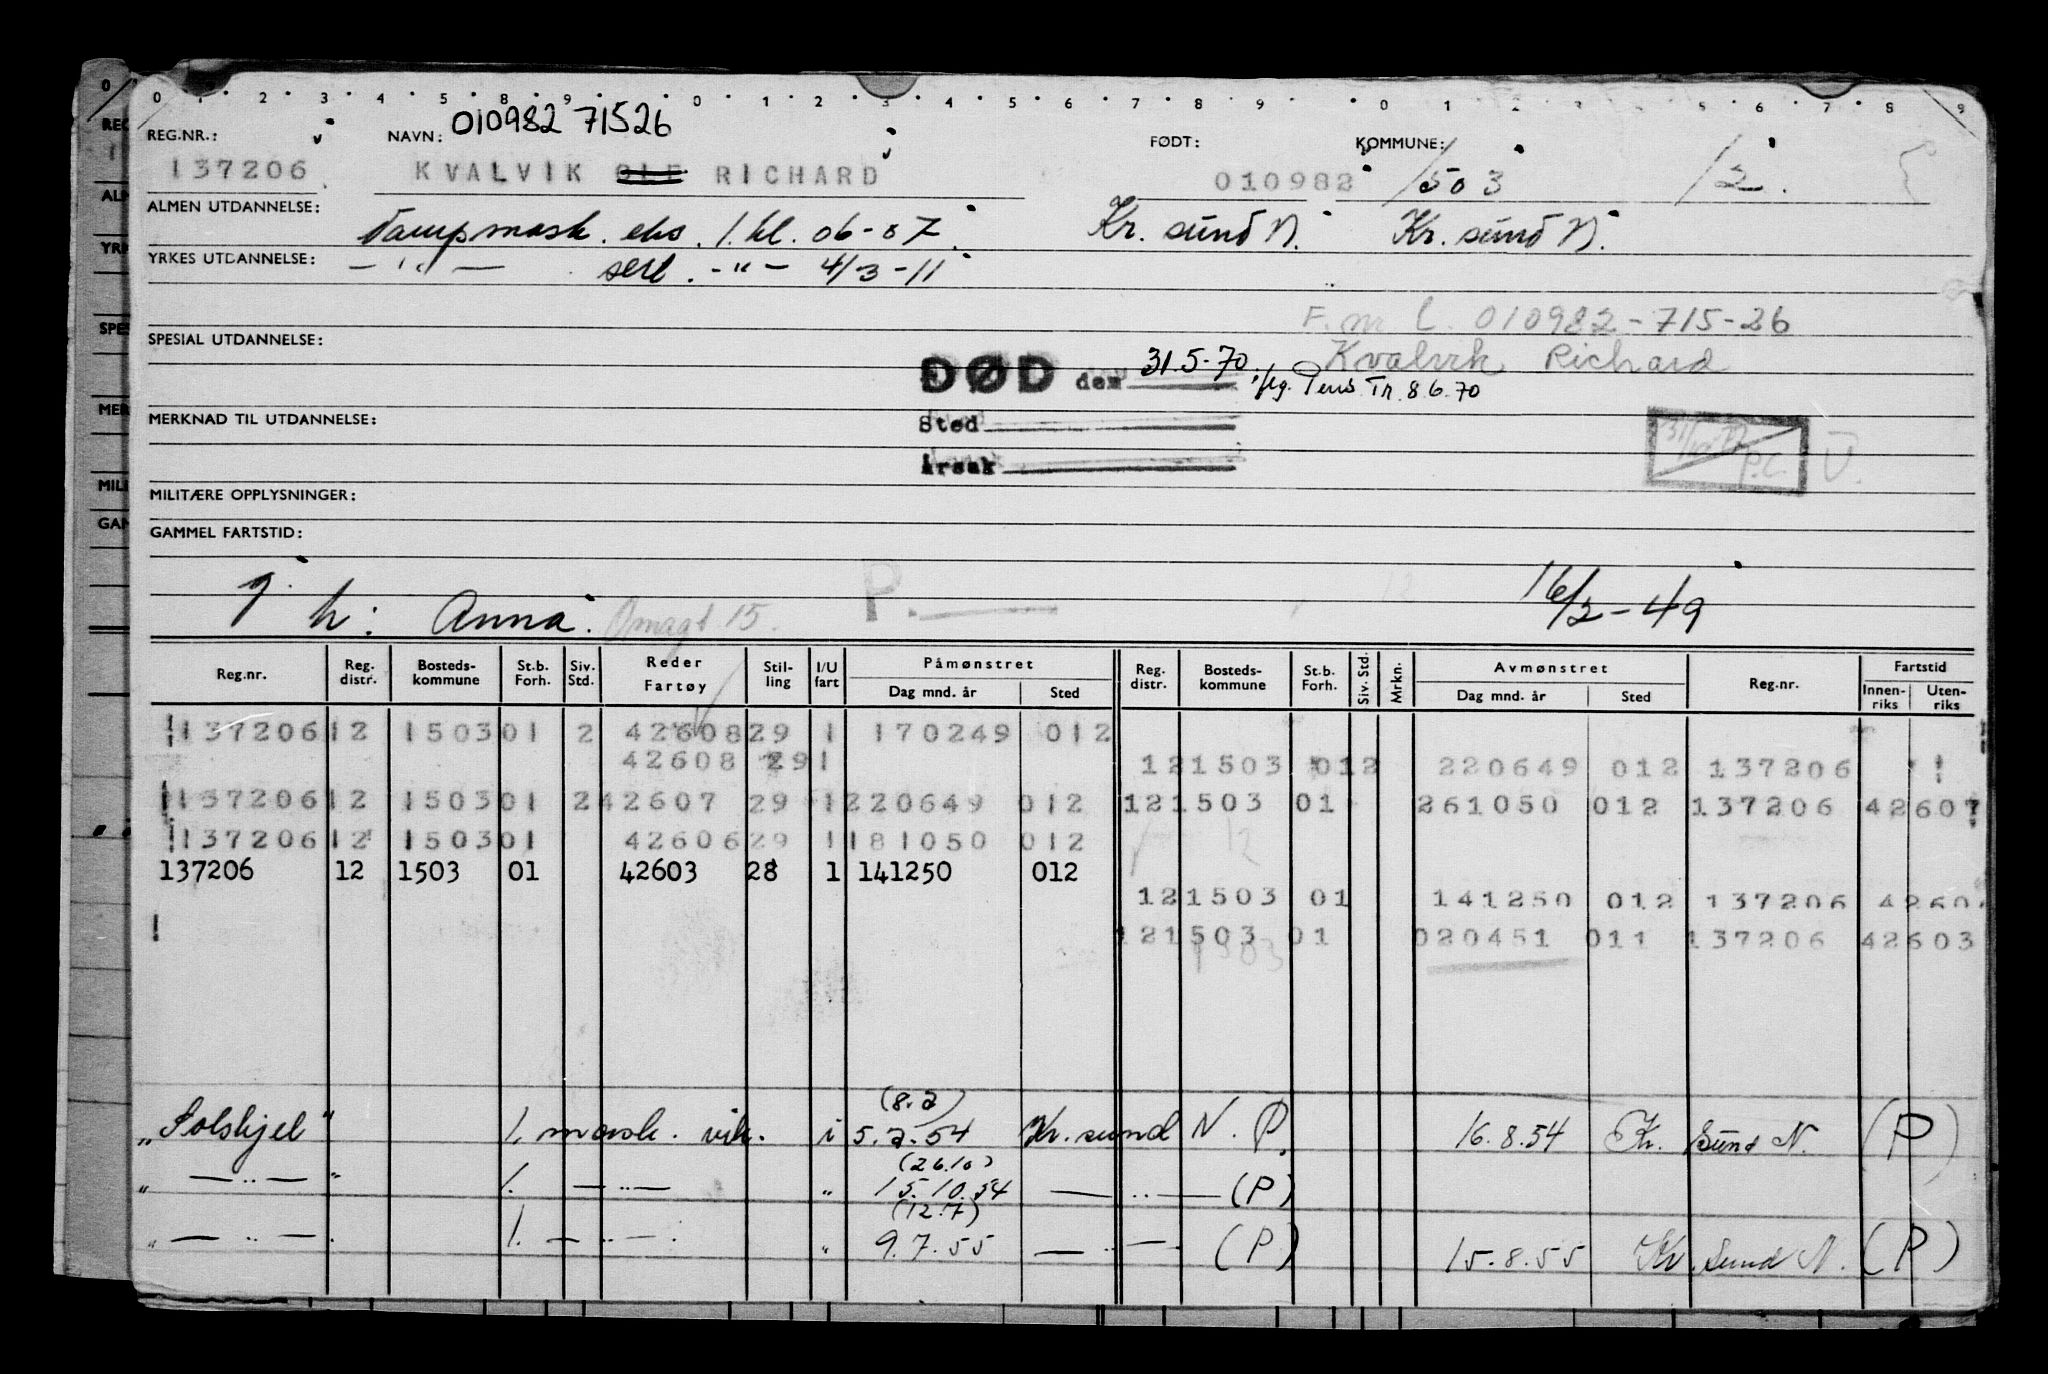 0 1 2 3 4 5 8 9 0 1 2 3 4 5 6 7 8 9 0 1 2 5 6 7 8 9
REG.NR.: NAVN: 010982 71526 FØDT: KOMMUNE:
137206 KVALVIK OLE RICHARD 010982 1503 12.
ALMEN UTDANNELSE: Dampmask. eks. 1. kl. 06-07. Kr. sund N. Kr. sund N.
YRKES UTDANNELSE: — " — sert. - " - 4/3-11
F.m l. 010982-715-26
SPESIAL UTDANNELSE: Kvalvik Richard
DØD den 31.5-70 Pens Tr. 8.6.70
MERKNAD TIL UTDANNELSE: Sted
P.C. U.
Årsak
MILITÆRE OPPLYSNINGER:
GAMMEL FARTSTID:
g. h: Anna. Omagt 15. P. 16/2-49
Reg.nr. Reg. distr. Bosteds-kommune St.b. Forh. Siv. Std. Reder Fartøy Stil-ling I/U fart Påmønstret Dag mnd. år Sted Reg. distr. Bosteds-kommune St.b. Forh. Siv. Std. Mrkn. Avmønstret Dag mnd. år Sted Reg.nr. Fartstid Innen-riks Uten-riks
137206 12 1503 01 2 42608 29 1 170249 012
42608 29 1 12 1503 012 220649 012 137206
137206 12 1503 01 2 42607 29 1 220649 012 12 1503 01 261050 012 137206 42607
137206 12 1503 01 42606 29 1 181050 012
137206 12 1503 01 42603 28 1 141250 012
12 1503 01 141250 012 137206 4260
12 1503 01 020451 011 137206 42603
(8.2)
„Solskjel" 1. mask. vik. i 5.2.54 Kr. sund N. P. 16.8.54 Kr. Sund N. (P)
(26.10)
„ — " — " 1. — " — " 15.10.54 — " — (P)
(12.7)
„ — " — . 1. — " — . " 9.7.55 — " — . (P) 15.8.55 Kr. Sund N. (P)